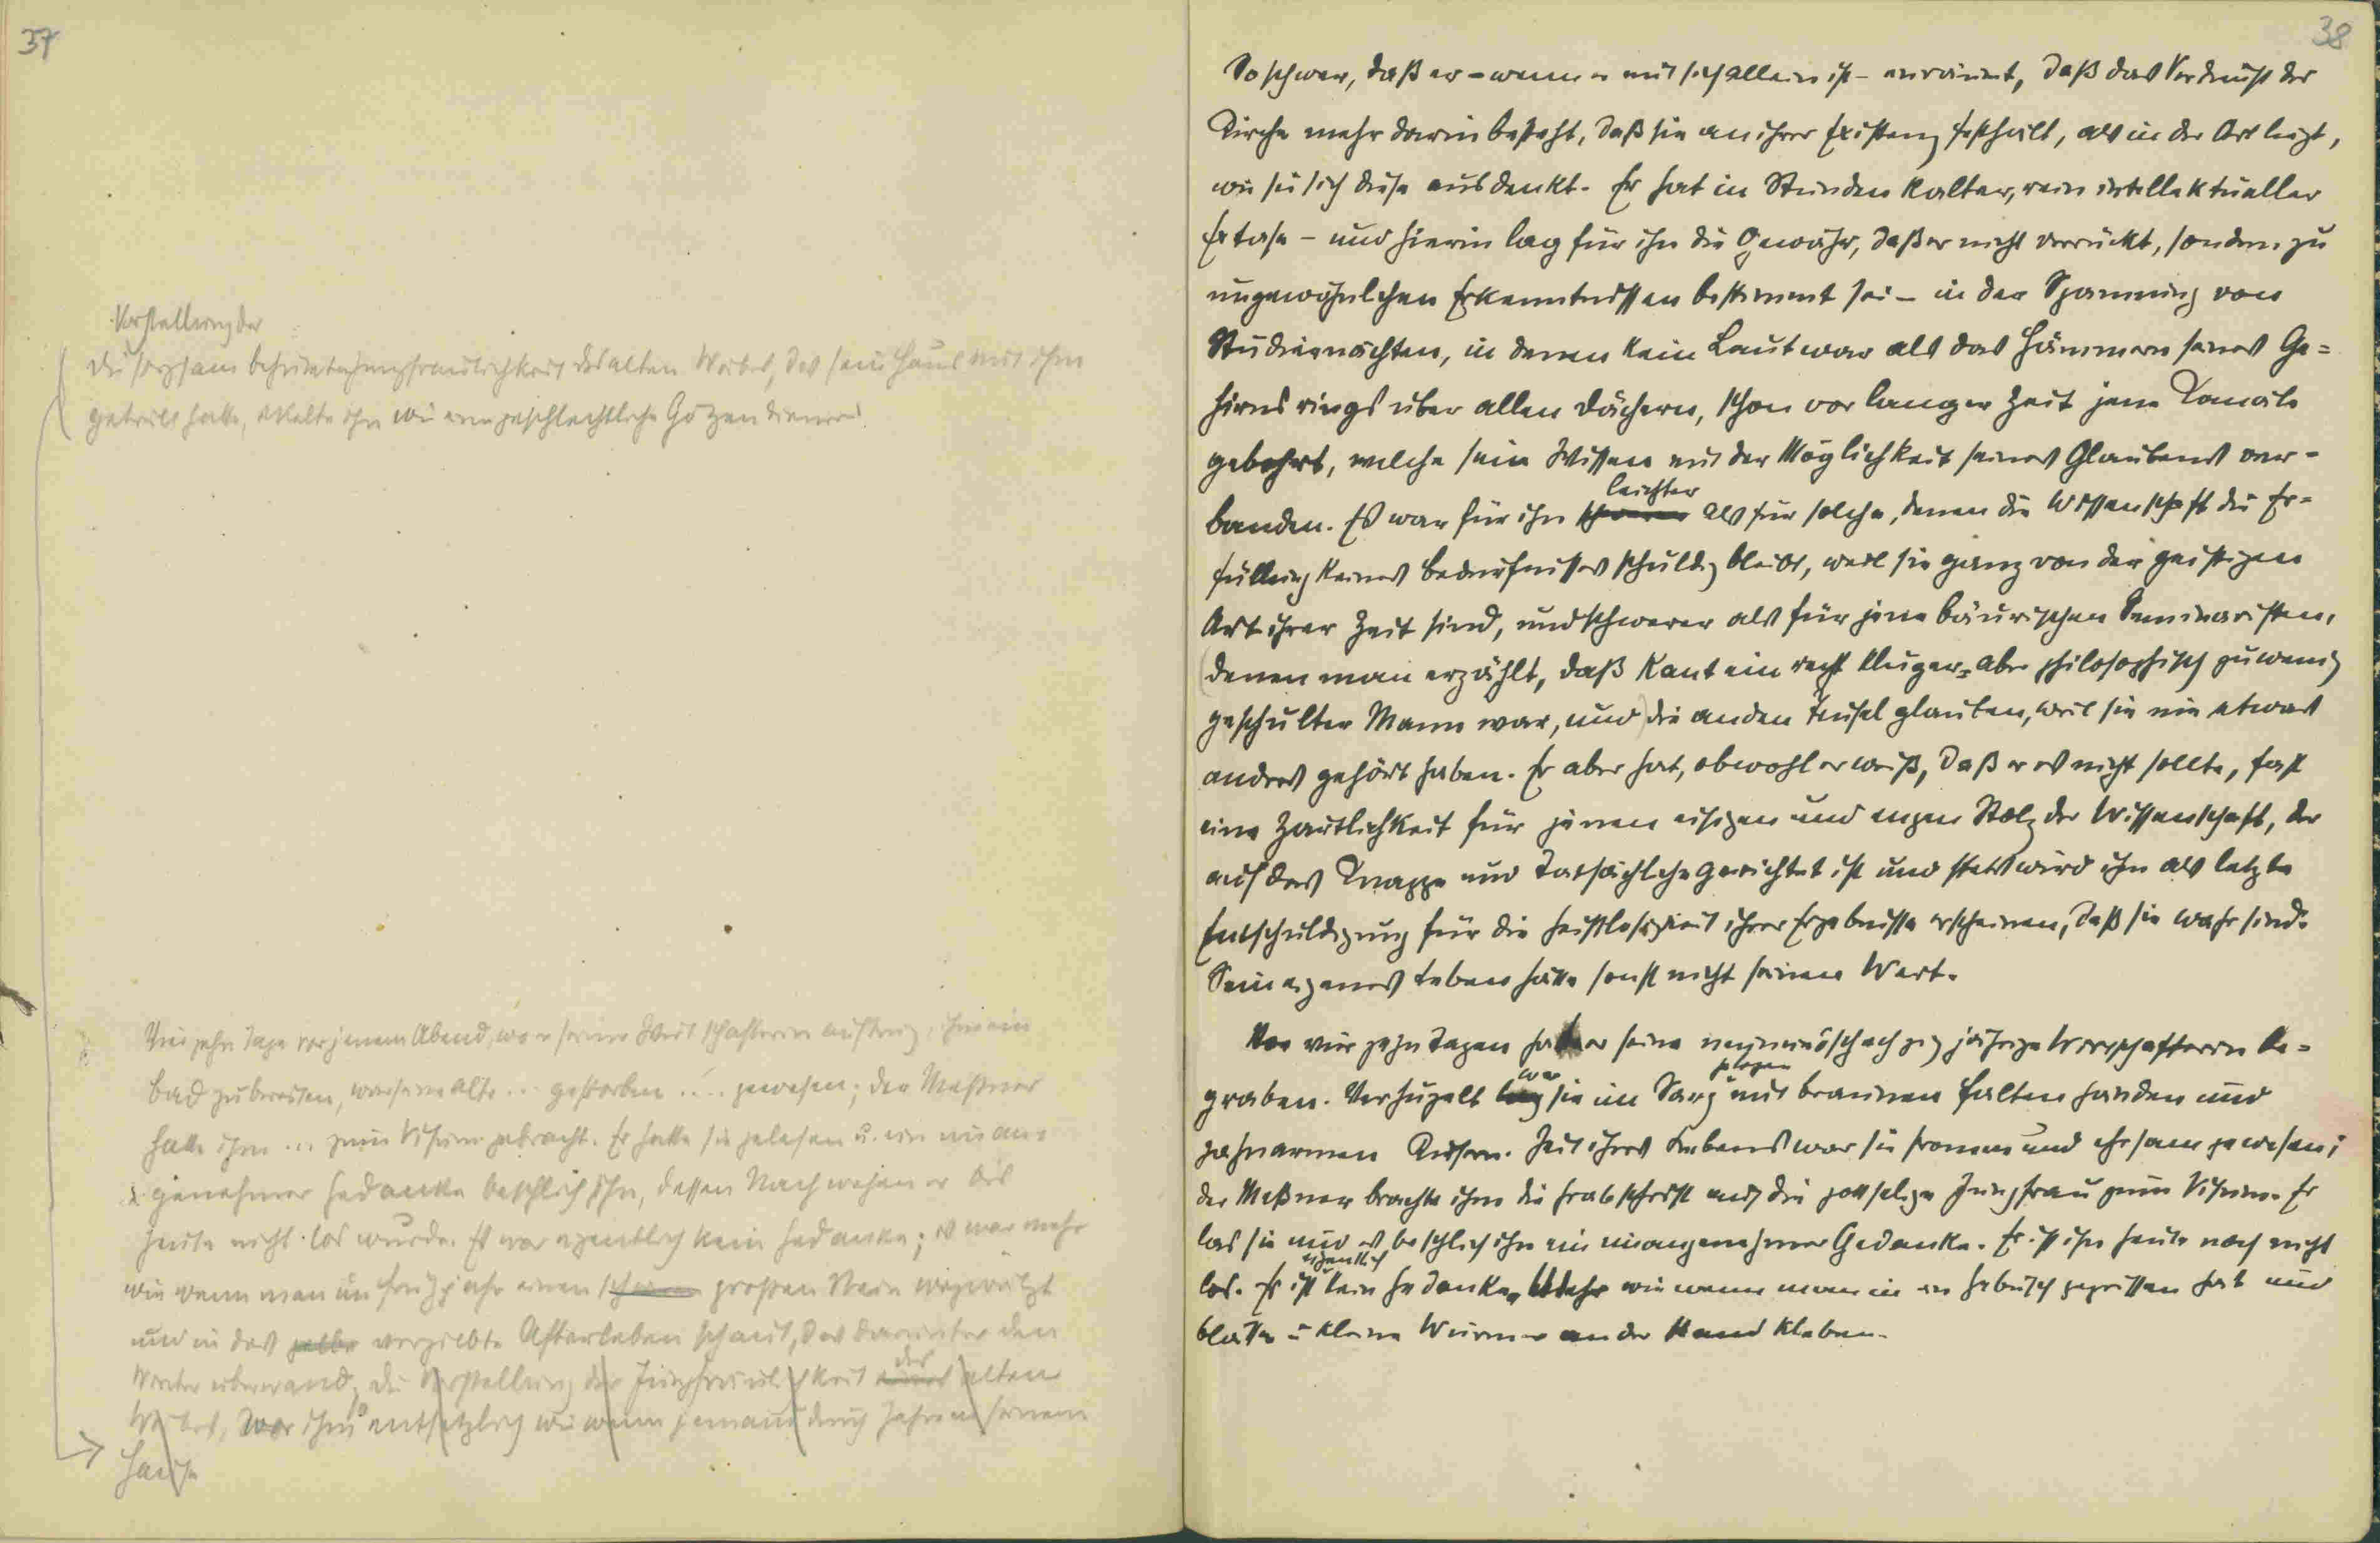 37
Vorstellung der
die sorgsam behütete Jungfräulichkeit des alten Weibes, das sein Haus mit ihm
geteilt hatte, ekelte ihn wie eine geschlechtliche Götzendienerei.
Vierzehn Tage vor jenem Abend, wo er seiner Wirtschafterin auftrug, ihm ein
Bad zu bereiten, war seine alte ... gestorben .... gewesen; der Meßner
hatte ihm ... zum Visum gebracht. Er hatte sie gelesen u. ein unan-
genehmer Gedanke beschlich ihn, dessen Nachwehen er bis
heute nicht los wurde. Es war eigentlich kein Gedanke; es war mehr
wie wenn man im Frühjahr einen großen Stein wegwälzt
und in das gelbe Afterleben schaut, das darunter den
Winter überwand; die Vorstellung der Jungfräulichkeit eines des alten
Weibes, war ihm so entsetzlich wie wenn jemand durch Jahre in seinem
Hause
38
So schwer, daß er – wenn er mit sich allein ist – einräumt, daß das Verdienst der
Kirche mehr darin besteht, daß sie an ihrer Existenz festhält, als in der Art liegt,
wie sie sich diese ausdenkt. Er hat in Stunden kalter, rein intellektueller
Extase – und hierin lag für ihn die Gewähr, daß er nicht verrückt, sondern zu
ungewöhnlichen Erkenntnissen bestimmt sei – in der Spannung von
Studiernächten, in denen kein Laut war als das Hämmern seines Ge=
hirns rings über allen Dächern, schon vor langer Zeit jene Kanäle
gebohrt, welche sein Wissen mit der Möglichkeit seines Glaubens ver-
leichter
banden. Es war für ihn schwerer als für solche, denen die Wissenschaft die Er-
füllung keines Bedürfnisses schuldig bleibt, weil sie ganz von der geistigen
Art ihrer Zeit sind, und schwerer als für jene bäurischen Seminaristen,
(denen man erzählt, daß Kant ein recht kluger, aber philosophisch zu wenig
geschulter Mann war, und) die an den Teufel glauben, weil sie nie etwas
andres gehört haben. Er aber hat, obwohl er weiß, daß er es nicht sollte, fast
eine Zärtlichkeit für jenen eisigen und engen Stolz der Wissenschaft, der
auf das Knappe und Tatsächliche gerichtet ist und stets wird ihm als letzte
Entschuldigung für die Geistlosigkeit ihrer Ergebnisse erscheinen, daß sie wahr sind.
Sein eigenes Leben hätte sonst nicht seinen Wert.
Vor vierzehn Tagen hat er seine neunundsechzigjährige Wirtschafterin be-
war
gelegen
graben. Verhuzelt lag sie im Sarg mit braunen Falten Händen und
zahnarmen Kiefern. Zeit ihres Lebens war sie fromm und ehrsam gewesen;
der Meßner brachte ihm die Grabschrift auf die gottselige Jungfrau zum Visum. Er
las sie und es beschlich ihn ein unangenehmer Gedanke. Er ist ihn heute noch nicht
eigentlich
los. Es ist kein Gedanke, Mehr wie wenn man in ein Gebüsch gegriffen hat und
Blätter u kleine Würmer an der Hand kleben.